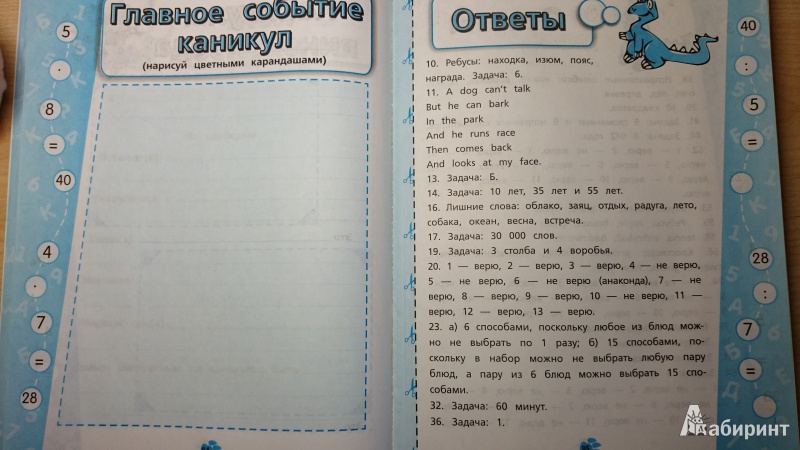 Главное событие
каникул
(нарисуй цветными карандашами)
5
·
8
=
40
4
·
7
=
28
Ответы
10. Ребусы: находка, изюм, пояс,
награда. Задача: 6.
11. A dog can't talk
But he can bark
In the park
And he runs race
Then comes back
And looks at my face.
13. Задача: Б.
14. Задача: 10 лет, 35 лет и 55 лет.
16. Лишние слова: облако, заяц, отдых, радуга, лето,
собака, океан, весна, встреча.
17. Задача: 30 000 слов.
19. Задача: 3 столба и 4 воробья.
20. 1 — верю, 2 — верю, 3 — верю, 4 — не верю,
5 — не верю, 6 — не верю (анаконда), 7 — не
верю, 8 — верю, 9 — верю, 10 — не верю, 11 —
верю, 12 — верю, 13 — верю.
23. а) 6 способами, поскольку любое из блюд мож-
но не выбрать по 1 разу; б) 15 способами, по-
скольку в набор можно не выбрать любую пару
блюд, а пару из 6 блюд можно выбрать 15 спо-
собами.
32. Задача: 60 минут.
36. Задача: 1.
40
:
5
=
28
:
7
=
Лабиринт